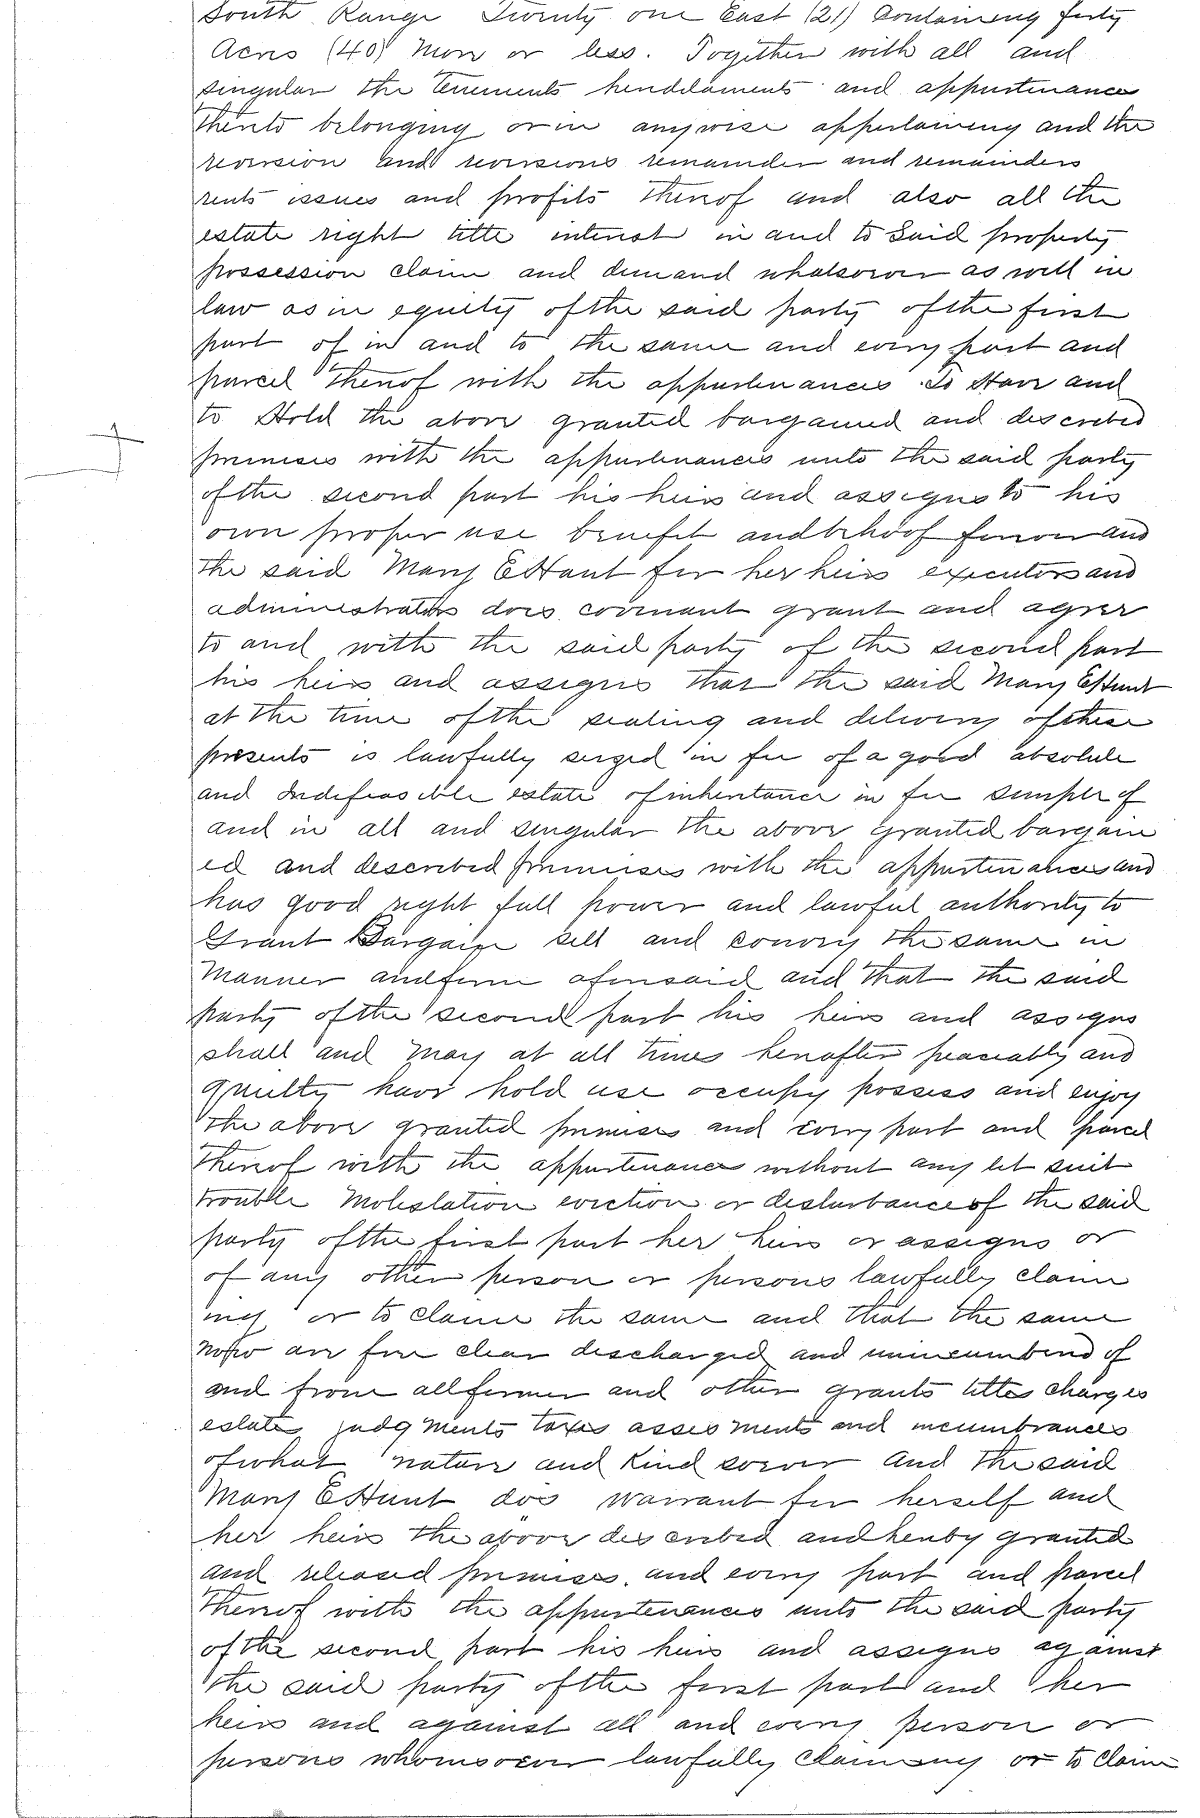 South Range Twenty one East (21) Containing forty
Acres (40) More or less. Together with all and
singular the tenements hereditaments and appurtenances
thereto belonging or in anywise appertaining and the
reversion and reversions remainder and remainders
rents issues and profits thereof and also all the
estate right title interest in and to said property
possession claim and demand whatsoever as well in
law as in equity of the said party of the first
part of in and to the same and every part and
parcel thereof with the appurtenances To Have and
to Hold the above granted bargained and described
premises with the appurtenances unto the said party
of the second part his heirs and assigns to his
own proper use benefit and behoof forever and
the said Mary E Hunt for her heirs executors and
administrators does covenant grant and agree
to and with the said party of the second part
his heirs and assigns that the said Mary E Hunt
at the time of the sealing and delivery of these
presents is lawfully seized in fee of a good absolute
and Indefeasible estate of inheritance in fee simple of
and in all and singular the above granted bargain
ed and described premises with the appurtenances and
has good right full power and lawful authority to
Grant Bargain sell and convey the same in
Manner and form aforesaid and that the said
party of the second part his heirs and assigns
shall and May at all times hereafter peaceably and
quietly have hold use occupy possess and enjoy
the above granted premises and every part and parcel
thereof with the appurtenances without any let suit
trouble Molestation eviction or disturbance of the said
party of the first part her heirs or assigns or
of any other person or persons lawfully claim
ing or to claim the same and that the same
now are free clear discharged and unincumbered of
and from all former and other grants titles charges
estates judgments taxes assesments and incumbrances
of what nature and Kind soever and the said
Mary E Hunt does warrant for herself and
her heirs the above described and hereby granted
and released premises. and every part and parcel
thereof with the appurtenances unto the said party
of the second part his heirs and assigns against
the said party of the first part and her
heirs and against all and every person or
persons whomsoever lawfully Claiming or to Claim